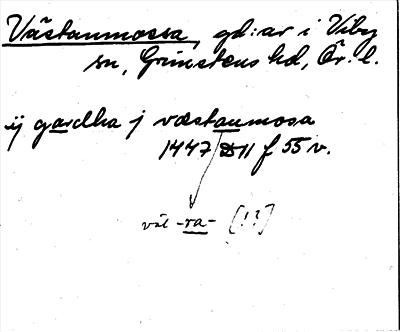 Västanmossa, gd:ar i Viby
sn, Grimstens hd, Ör. l.
ij gardha j væstaumosa
1447 D 11 f 55 v.
väl -ra- [!?]